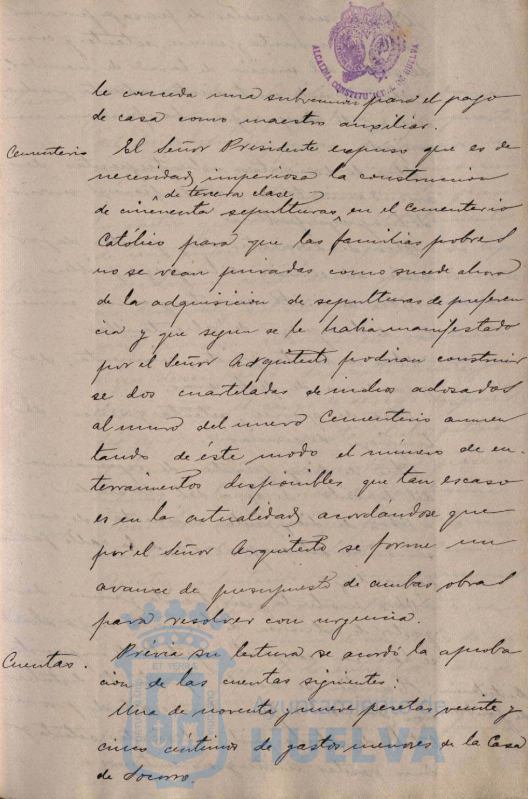 ALCALDIA CONSTITUCIONAL DE HUELVA
le conceda una subvencion para el pago
de casa como maestro auxiliar.
Cementerio El Señor Presidente expuso que es de
necesidad imperiosa la construccion
de tercera clase
de cincuenta sepulturas ^ en el Cementerio
Católico para que las familias pobres
no se vean privadas como sucede ahora
de la adquisicion de sepulturas de preferen
cia y que segun se le habia manifestado
por el Señor Arquitecto podrian construir
se dos cuarteladas de nichos adosados
al muro del nuevo Cementerio aumen
tando de éste modo el número de en-
terramientos disponibles que tan escaso
es en la actualidad, acordándose que
por el Señor Arquitecto se forme un
avance de presupuesto de ambas obras
para resolver con urgencia.
Cuentas. Previa su lectura se acordó la aproba
cion de las cuentas siguientes:
Una de noventa y nueve pesetas veinte y
cinco céntimos de gastos menores de la Casa
de Socorro.
Ayuntamiento de
HUELVA